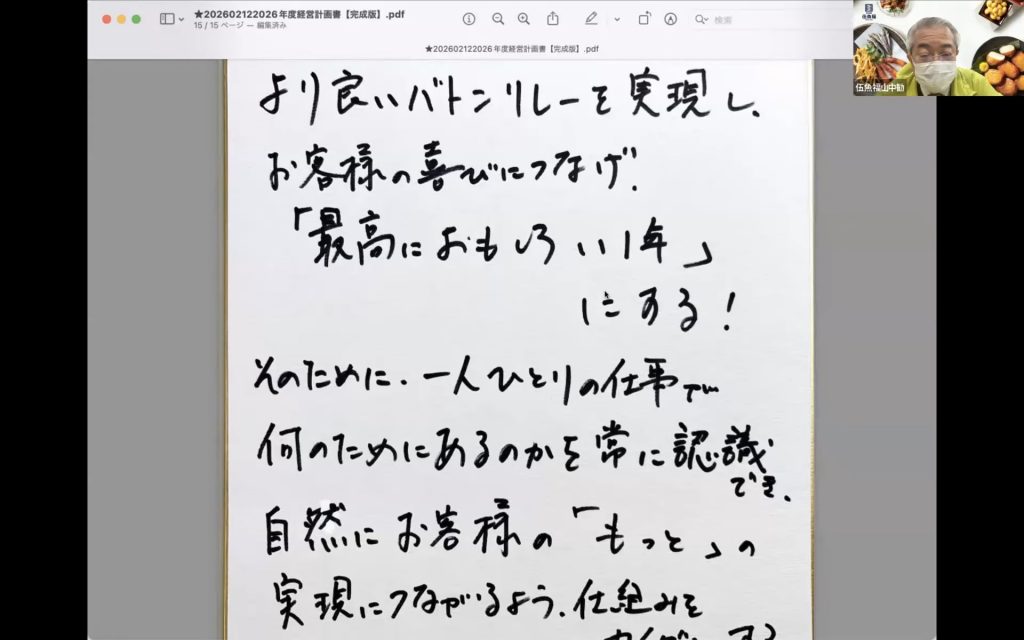 ★202602122026年度経営計画書【完成版】.pdf
15 / 15 ページ — 編集済み
検索
★202602122026年度経営計画書【完成版】.pdf
伍魚福山中勧
より良いバトンリレーを実現し、
お客様の喜びにつなげ、
「最高におもしろい1年」
にする!
そのために、一人ひとりの仕事が
何のためにあるのかを常に認識
でき、
自然にお客様の「もっと」の
実現につながるよう、仕組みを